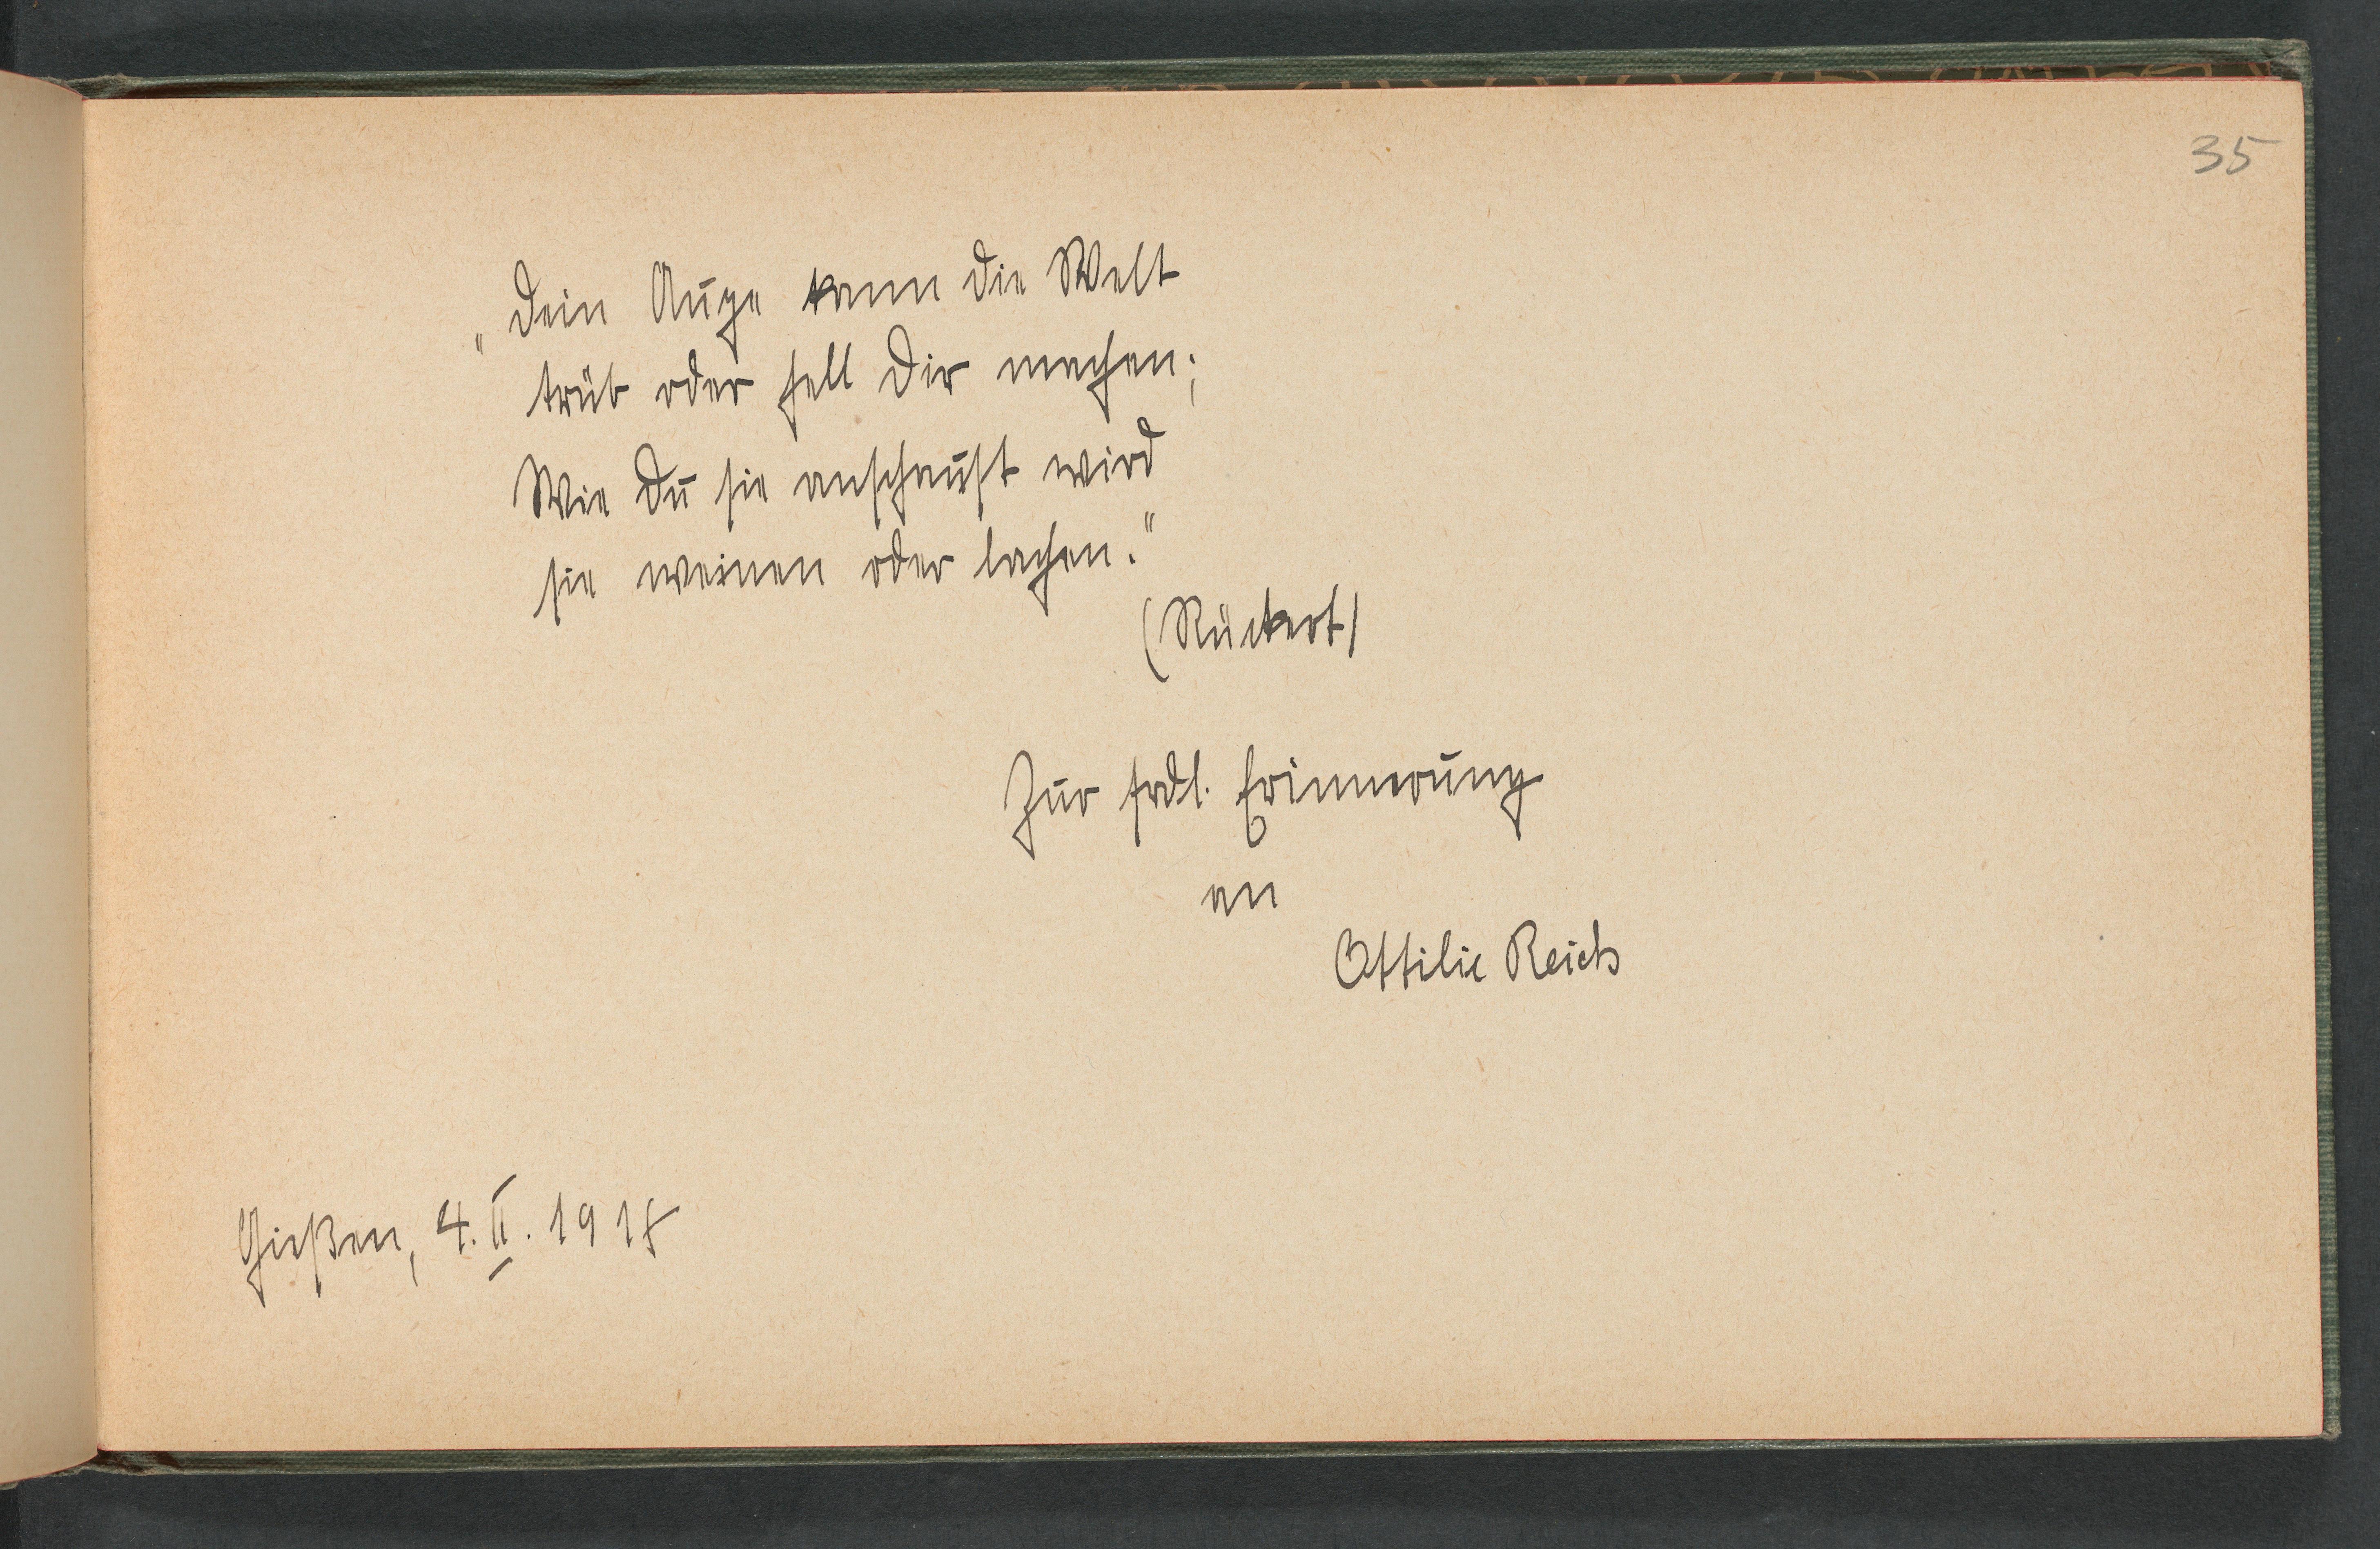 35
„Dein Auge kann die Welt
trüb oder hell Dir machen;
Wie Du sie anschaust wird
sie weinen oder lachen."
(Rückert)
Zur frdl. Erinnerung
an
Ottilie Reich
Gießen, 4. II. 1918